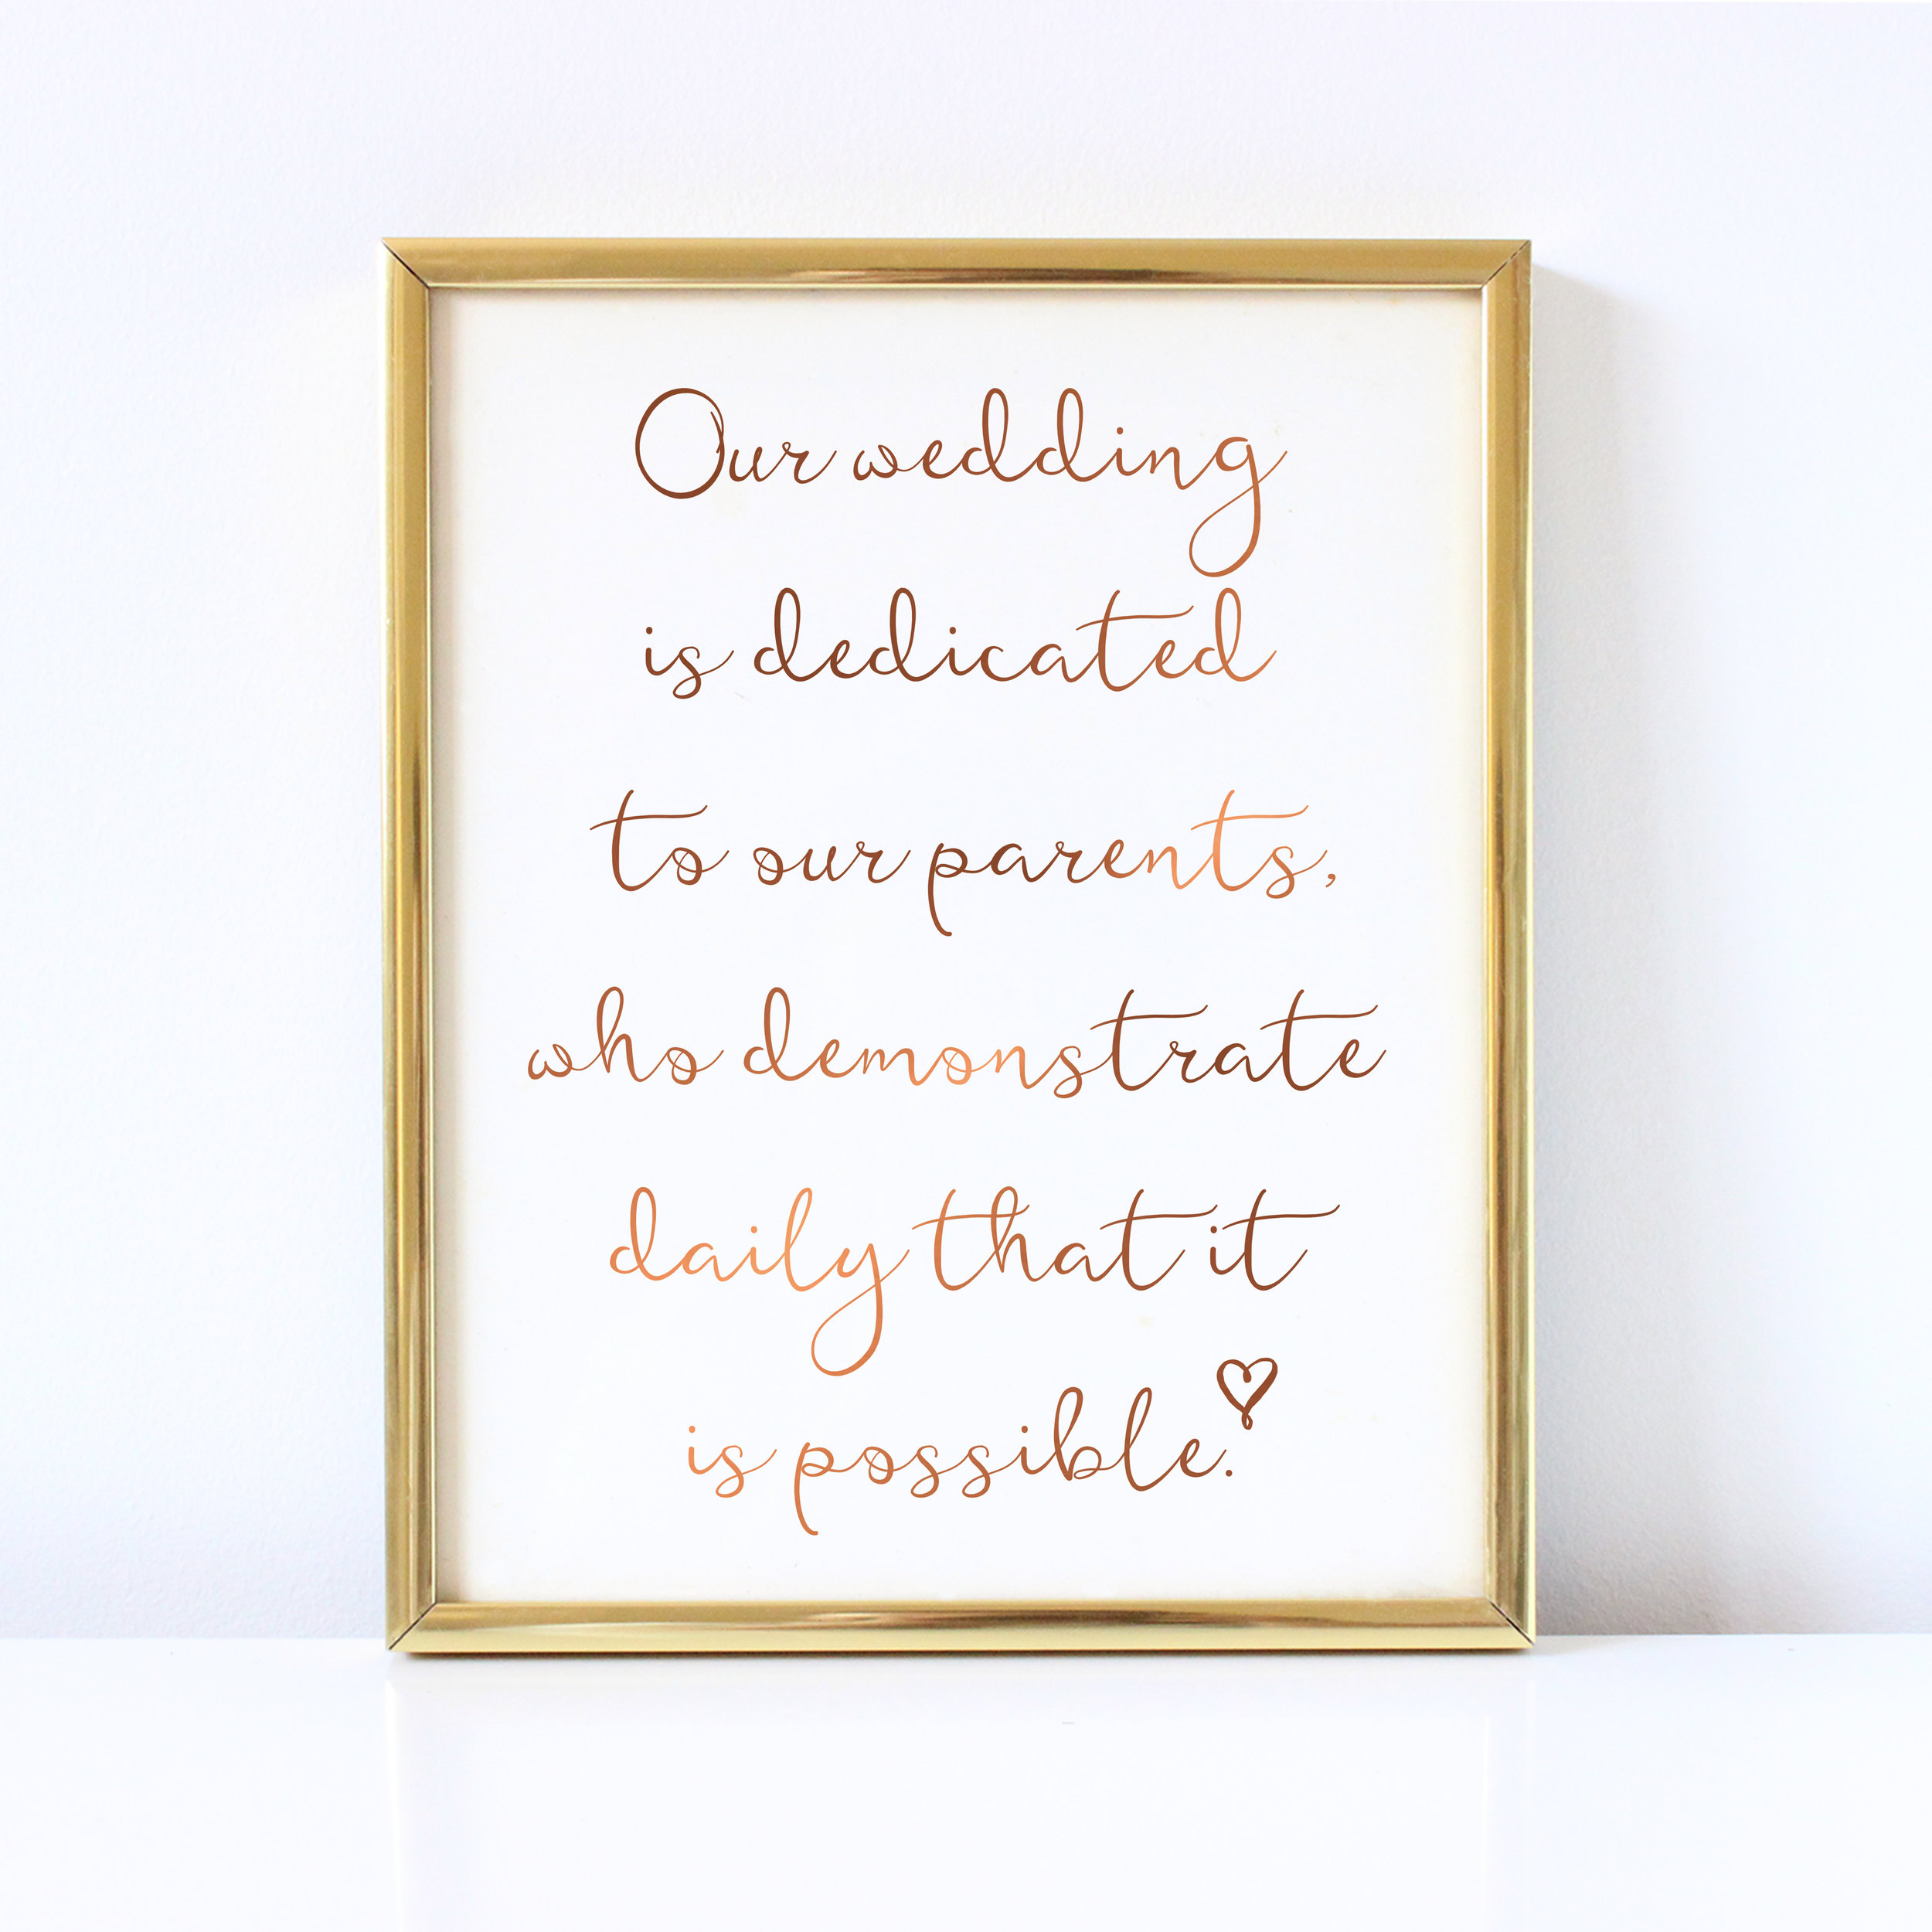 Our wedding
is dedicated
to our parents,
who demonstrate
daily that it
is possible.